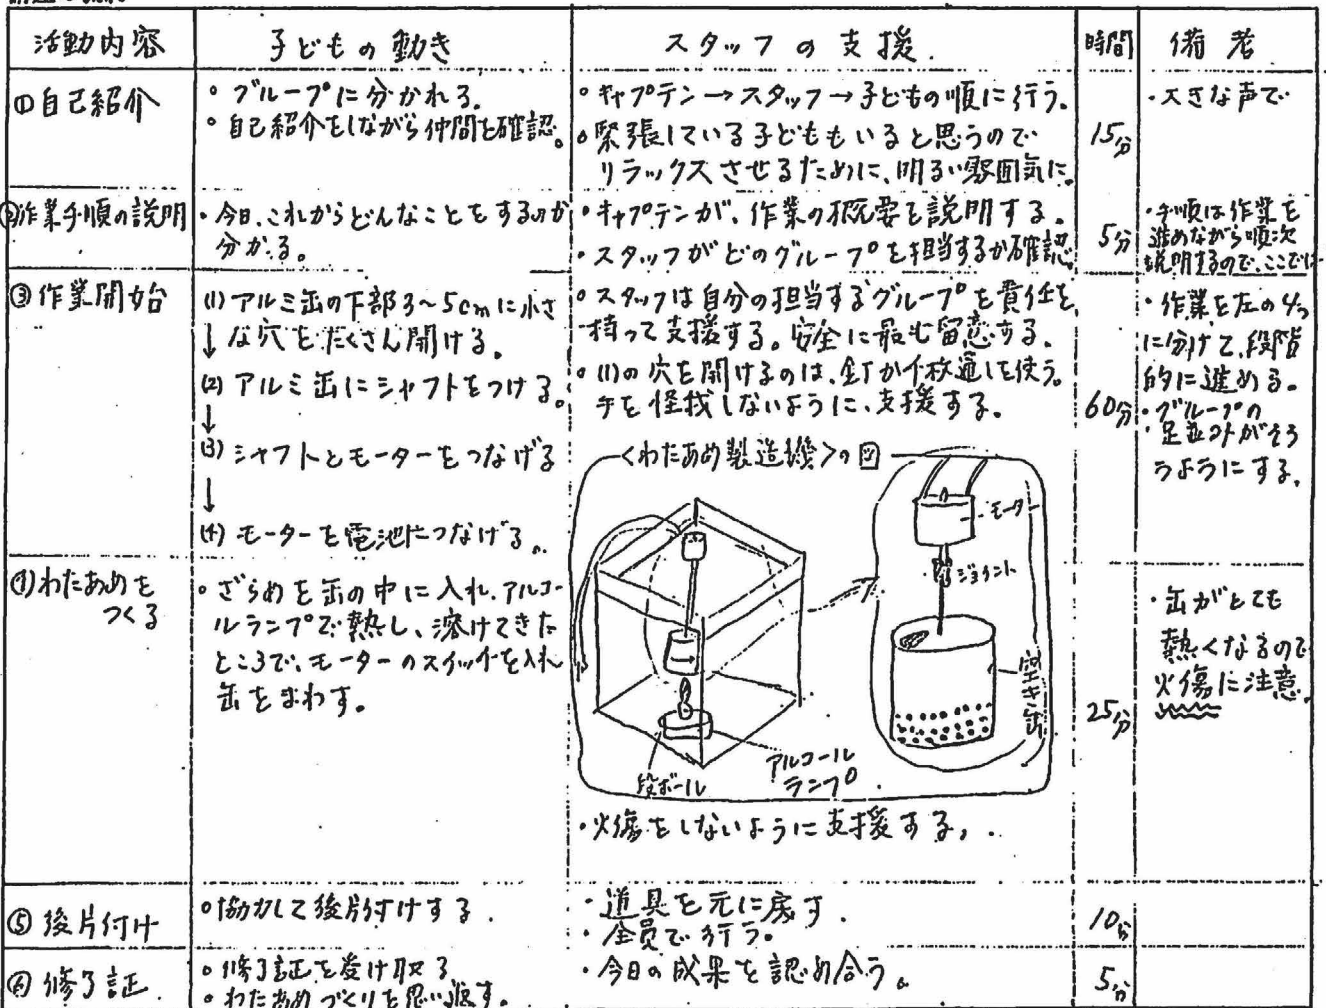 活動内容 子どもの動き スタッフの支援. 時間 備考
①自己紹介
。グループに分かれる.
。自己紹介をしながら仲間を確認。
。キャプテン→スタッフ→子どもの順に行う.
。緊張している子どももいると思うので
リラックスさせるために、明るい雰囲気に。
15分
・大きな声で
②作業手順の説明
・今日、これからどんなことをするのか
分かる。
・キャプテンが、作業の概要を説明する.
・スタッフがどのグループを担当するか確認
5分
・手順は作業を
進めながら順次
説明するので、ここでは
③作業開始
(1) アルミ缶の下部3～5cmに小さ
↓な穴をたくさん開ける.
(2) アルミ缶にシャフトをつける。
↓
(3) シャフトとモーターをつなげる
↓
(4) モーターを電池につなげる。
。スタッフは自分の担当するグループを責任を
持って支援する。安全に最も留意する.
。(1)の穴を開けるのは、釘か千枚通しを使う.
手を怪我しないように、支援する.
60分
・作業を左の4つ
に分けて、段階
的に進める。
・グループの
・足並みがそろ
うようにする.
<わたあめ製造機>の図
モーター
ジョイント
空き缶
アルコール
ランプ
段ボール
④わたあめを
つくる
。ざらめを缶の中に入れ、アルコー
ルランプで熱し、溶けてきた
ところで、モーターのスイッチを入れ
缶をまわす。
・火傷をしないように支援する.
25分
・缶がとても
熱くなるので
火傷に注意.
⑤後片付け
。協力して後片付けする.
・道具を元に戻す.
・全員で行う。
10分
⑥修了証.
。修了証を受け取る
。わたあめづくりを思い返す.
・今日の成果を認め合う。
5分